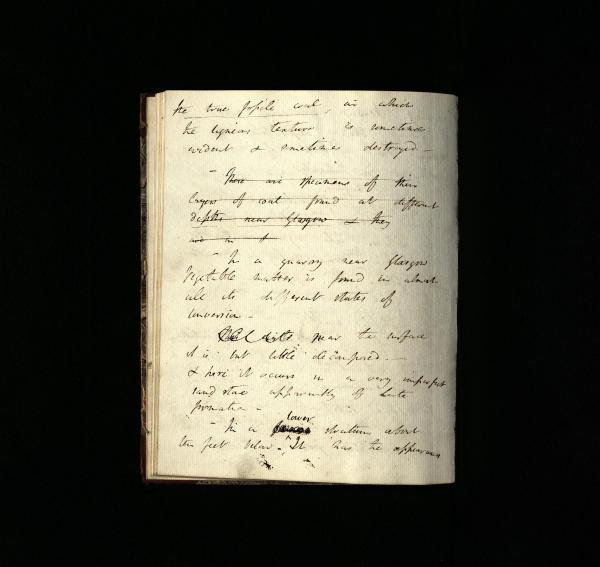 the true fossile coal, in which
the ligneous texture is sometimes
evident & sometimes destroyed -
- There are specimens of thin
layers of coal found at different
depths near Glasgow & they
are in t
- In a quarry near Glasgow
vegetable matter is found in almost
all its different states of
conversion -
near the surface
it is but little decomposed. -
& here it occurs in a very imperfect
sand stone apparently of late
formation -
- In a lower stratum about
ten feet below - It has the appearance